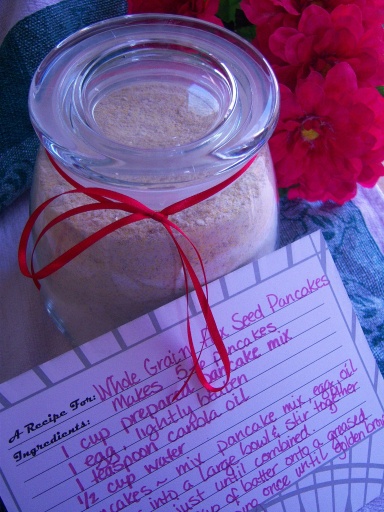 A Recipe For: Whole Grain Flax Seed Pancakes
Makes pancakes
Ingredients:
1 cup prepared pancake mix
1 egg, lightly beaten
1 teaspoon canola oil
1/2 cup water
pancake mix, egg, oil
into a large bowl & stir together
just until combined.
of batter onto a greased
once until golden brow